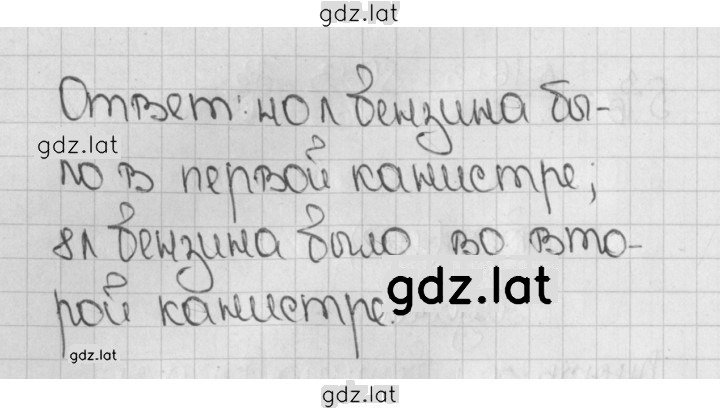 gdz.lat
Ответ: 40 л бензина бы-
gdz.lat
ло в первой канистре;
8л бензина было во вто-
рой канистре.
gdz.lat
gdz.lat
gdz.lat